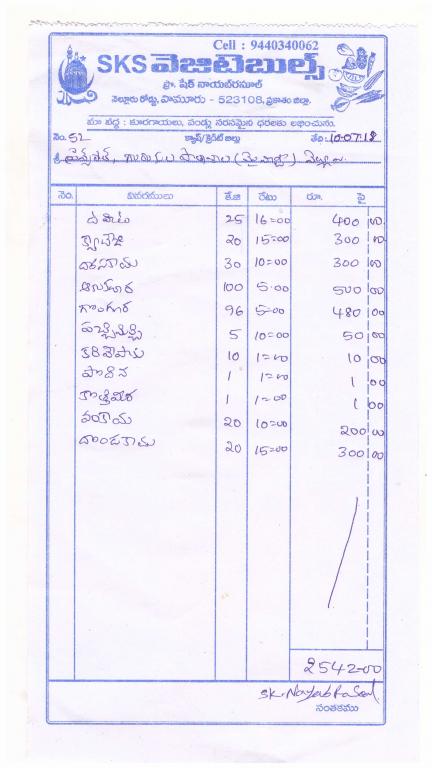 Cell : 9440340062
SKS వెజిటెబుల్స్
ప్రొ. షేక్ నాయబ్‌రసూల్
నెల్లూరు రోడ్డు, పామూరు - 523108, ప్రకాశం జిల్లా.
మా వద్ద : కూరగాయలు, పండ్లు సరసమైన ధరలకు లభించును.
నెం. 52 క్యాష్/క్రెడిట్ బిల్లు తేది: 10-07-18
శ్రీ
నెం. వివరములు కే.జి రేటు రూ. పై
25 16=00 400 00
20 15=00 300 00
30 10=00 300 00
100 5=00 500 00
గొంగూర 96 5=00 480 00
5 10=00 50 00
10 1=00 10 00
1 1=00 1 00
కొత్తిమీర 1 1=00 1 00
వంకాయ 20 10=00 200 00
దొండకాయ 20 15=00 300 00
2542-00
SK. Nayab Rasool
సంతకము